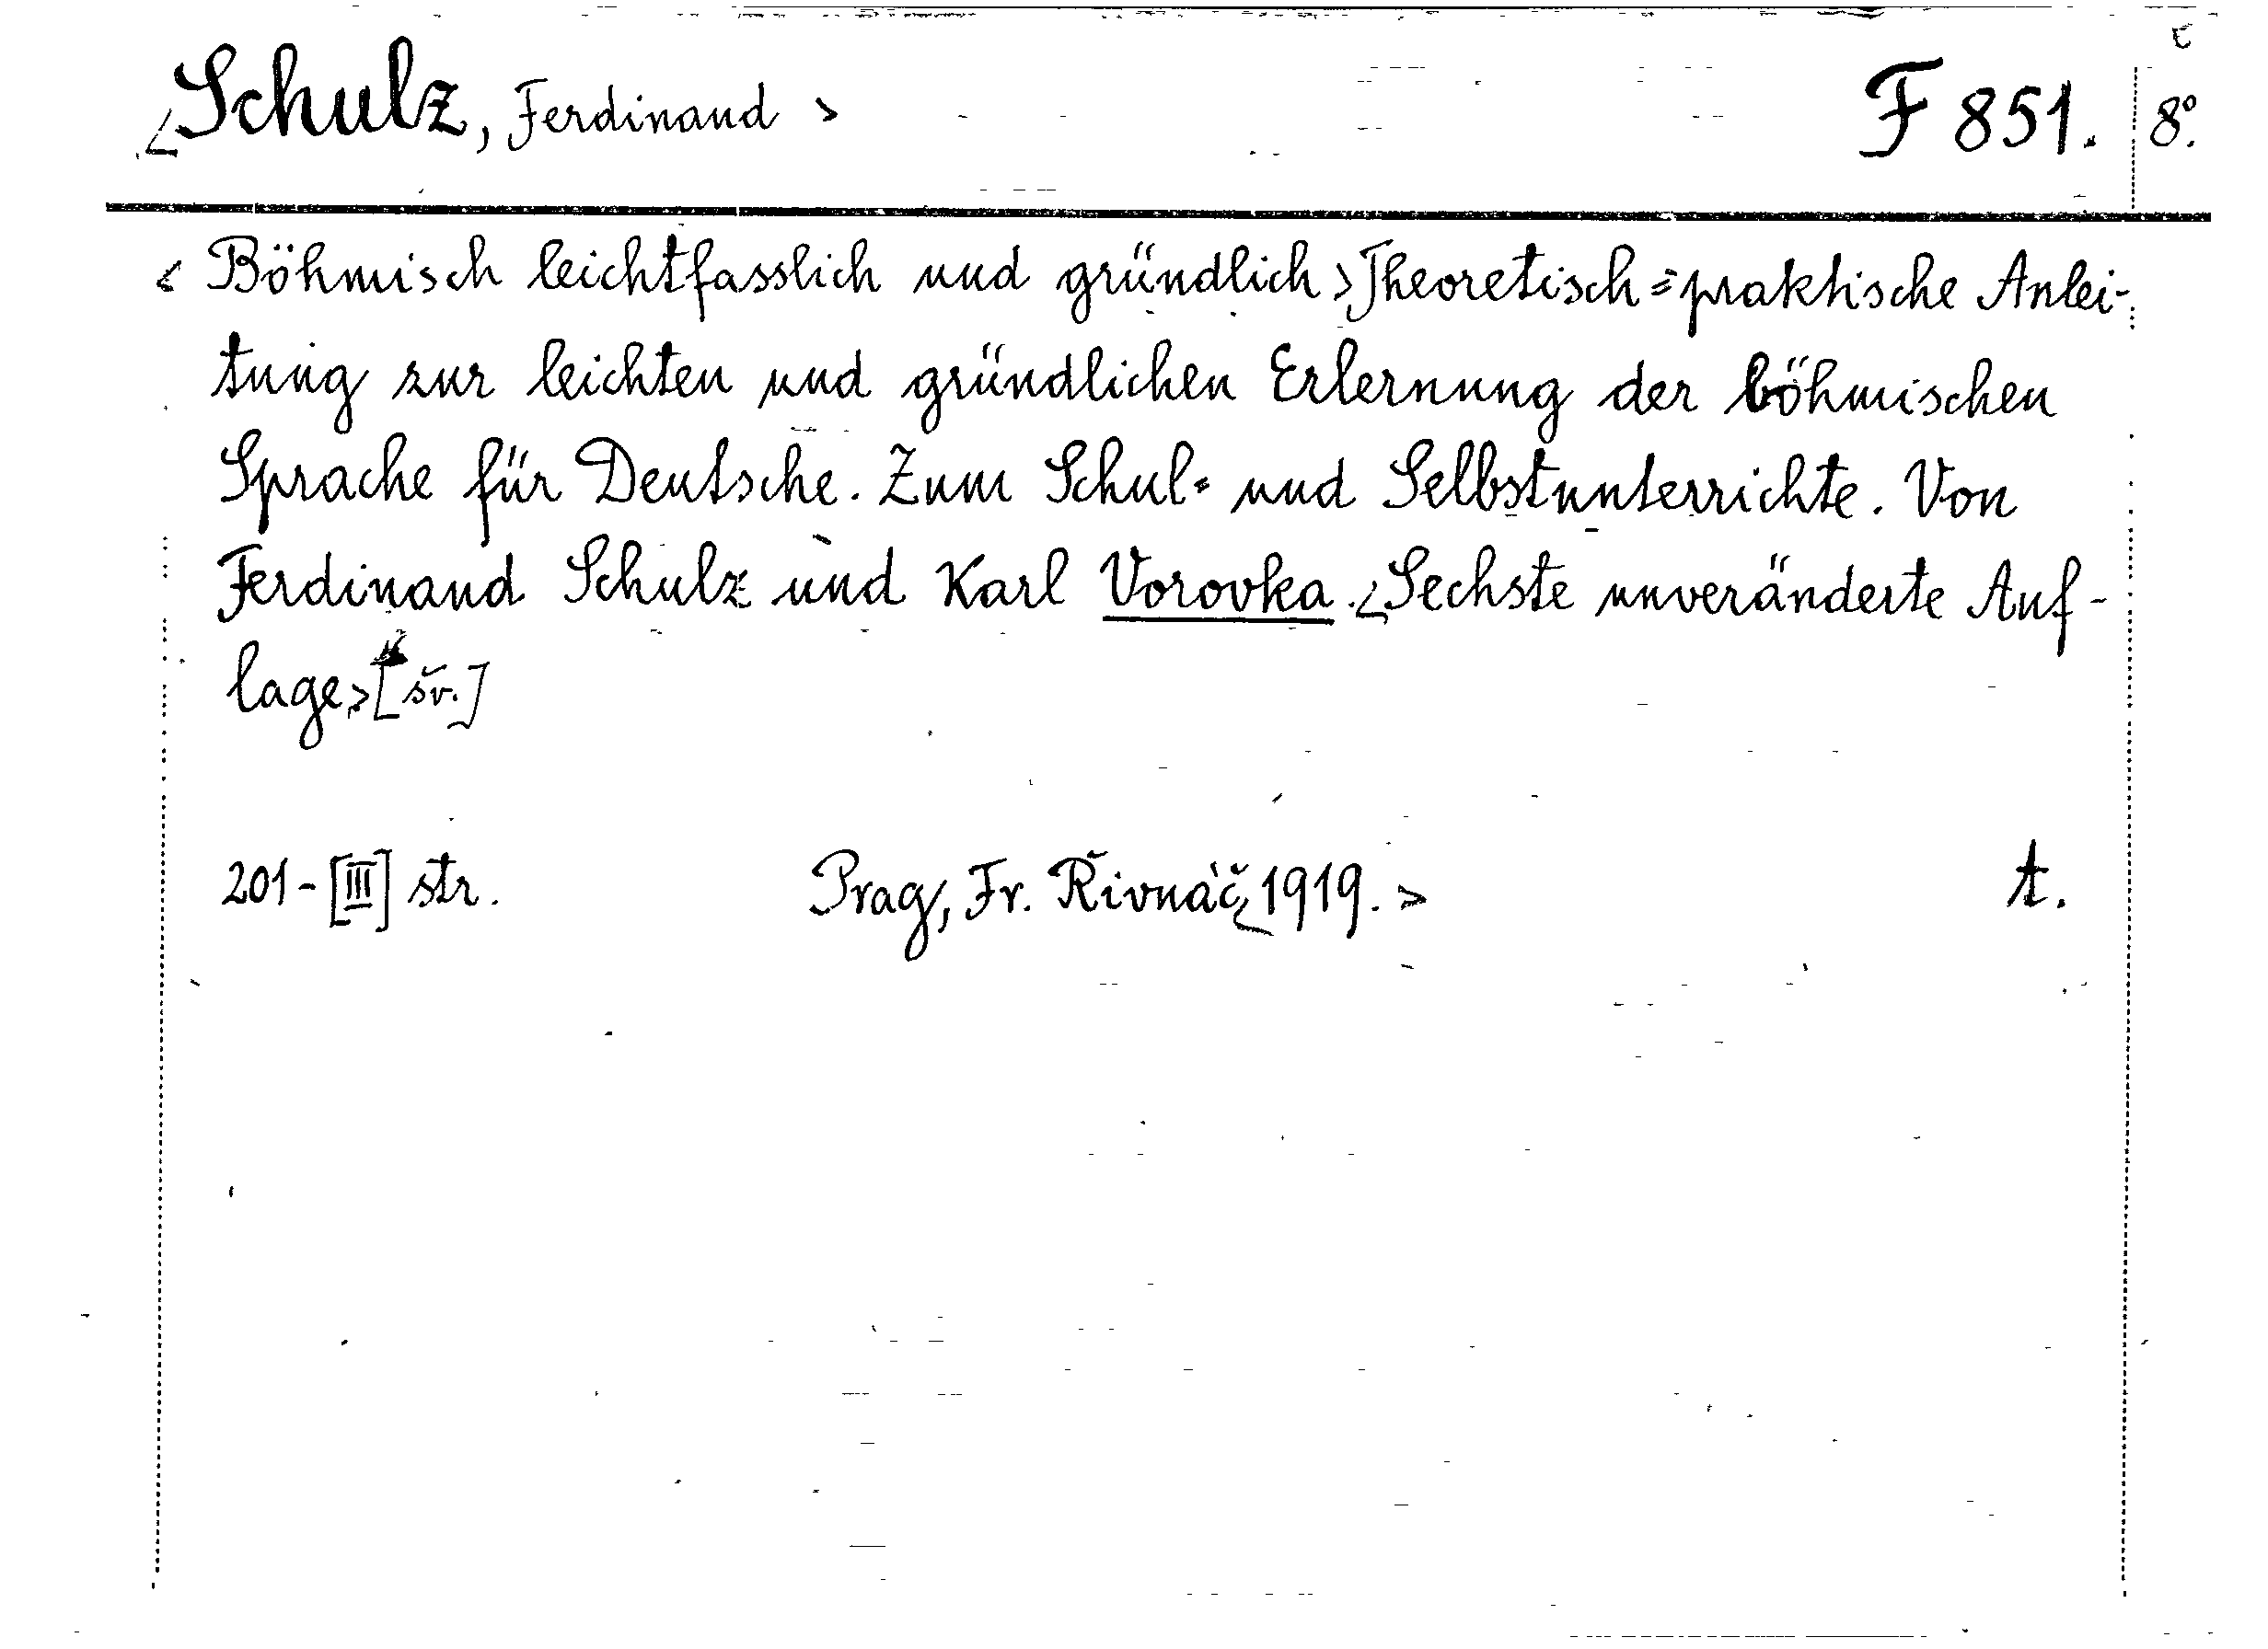 <Schulz, Ferdinand> F 851. 8°.
<Böhmisch leichtfasslich und gründlich> Theoretisch=praktische Anlei-
tung zur leichten und gründlichen Erlernung der böhmischen
Sprache für Deutsche. Zum Schul= und Selbstunterrichte. Von
Ferdinand Schulz und Karl Vorovka. <Sechste unveränderte Auf-
lage.> [šv.]
201-[III] str. Prag, Fr. Řivnáč, <1919.> t.